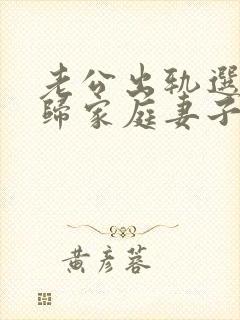 老公出轨選
歸家庭妻子
黃彦蓉